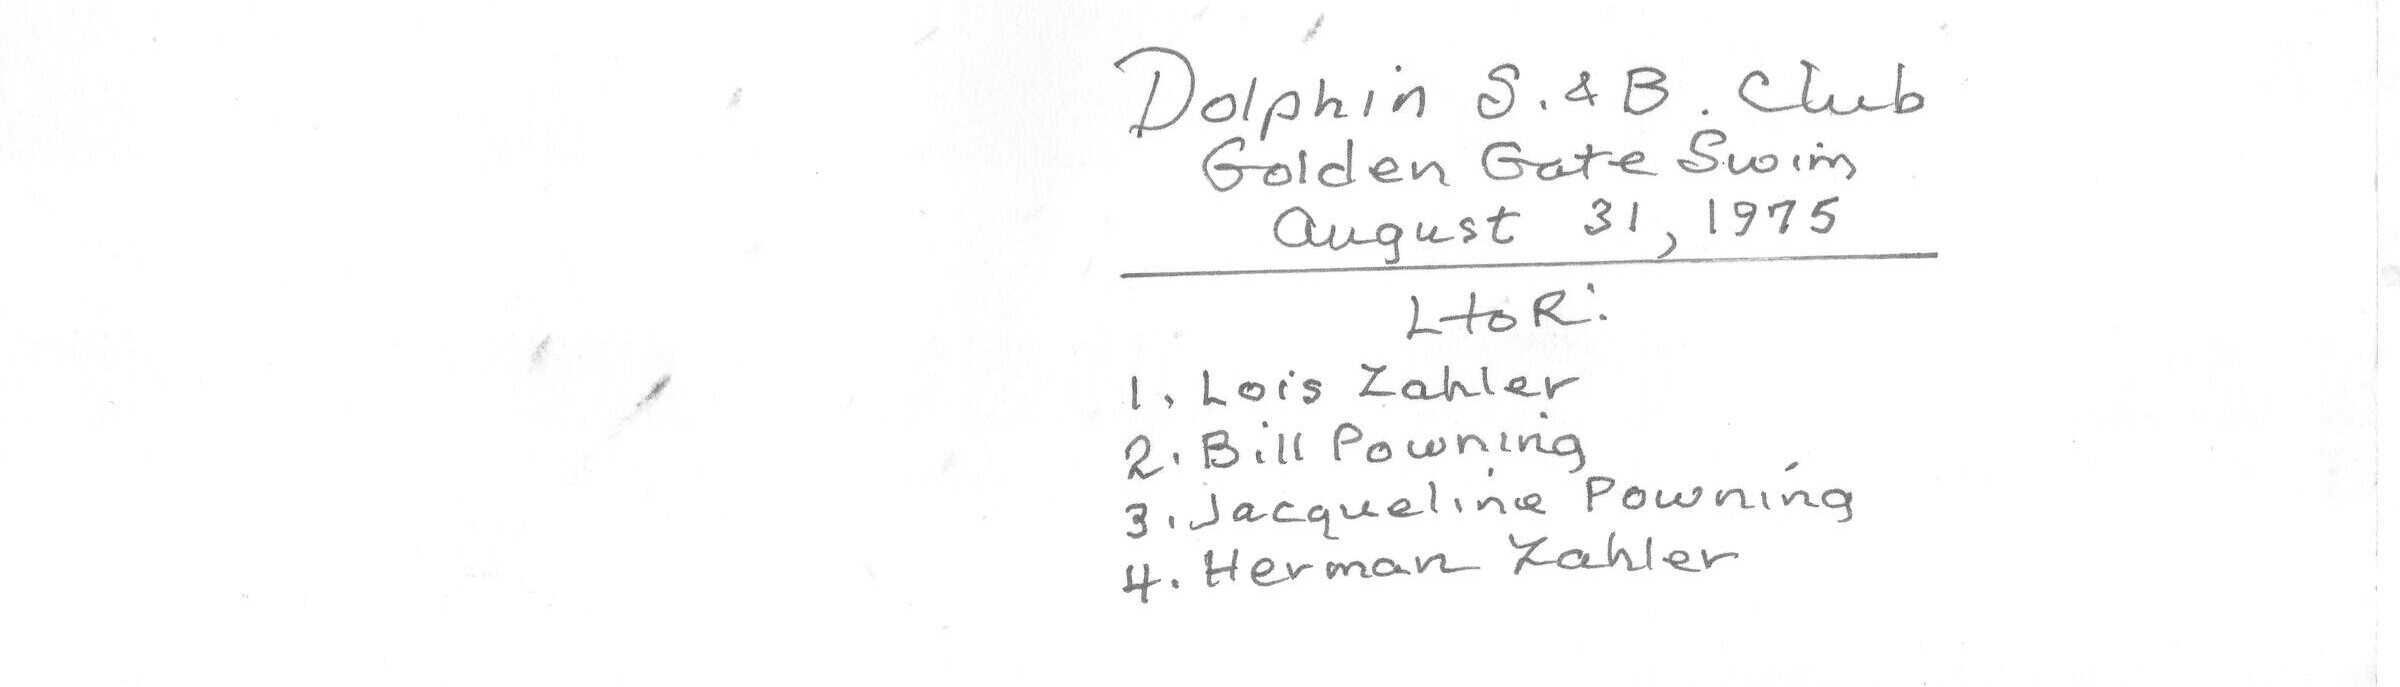 Dolphin S. & B. Club
Golden Gate Swim
August 31, 1975
L to R:
1. Lois Zahler
2. Bill Powning
3. Jacqueline Powning
4. Herman Zahler